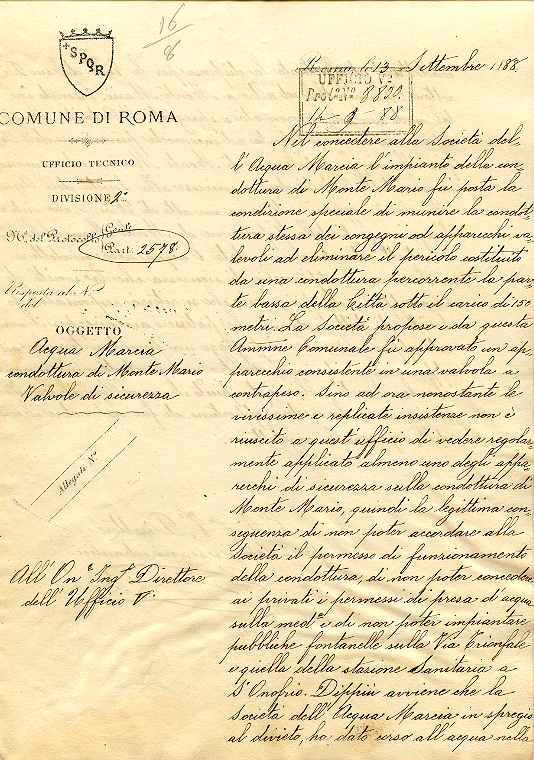 16
8
SPQR
COMUNE DI ROMA
UFFICIO TECNICO
DIVISIONE 2ª
N.º del Protocollo Genle
Part. 2578
Risposta al N.
del
OGGETTO
Acqua Marcia
condottura di Monte Mario
Valvole di sicurezza
Allegati N.º
All'On.e Ing.e Direttore
dell'Ufficio V.º
Roma, li 13 Settembre 1888
UFFICIO V.º
Prot.º N.º 8830
14 9 88
Nel concedere alla Società del-
l'Acqua Marcia l'impianto della con-
dottura di Monte Mario fu posta la
condizione speciale di munire la condot-
tura stessa dei congegni ed apparecchi va-
levoli ad eliminare il pericolo costituito
da una condottura percorrente la par-
te bassa della Città sotto il carico di 150
metri. La Società propose e da questa
Ammne Comunale fu approvato un ap-
parecchio consistente in una valvola a
contrapeso. Sino ad ora nonostante le
vivissime e replicate insistenze non è
riuscito a quest'ufficio di vedere regolar-
mente applicato almeno uno degli appa-
recchi di sicurezza sulla condottura di
Monte Mario, quindi la legittima con-
seguenza di non poter accordare alla
Società il permesso di funzionamento
della condottura, di non poter concedere
ai privati i permessi di presa d'acqua
sulla med.a e di non poter impiantare
pubbliche fontanelle sulla Via Trionfale
e quella della stazione Sanitaria a
S. Onofrio. Dippiù avviene che la
Società dell'Acqua Marcia, in spregio
al divieto, ha dato corso all'acqua nella